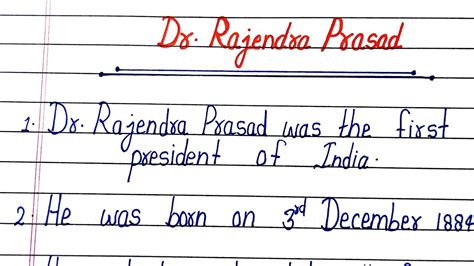 Dr. Rajendra Prasad
1. Dr. Rajendra Prasad was the first
president of India.
2. He was born on 3rd December 1884